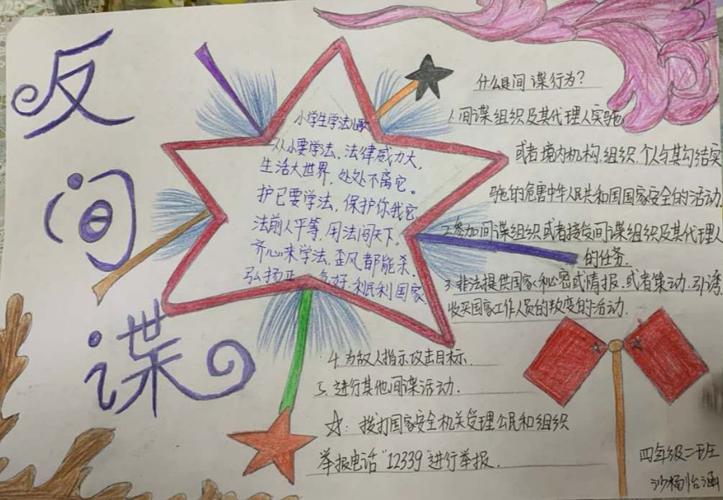 反间谍
小学生学法儿歌
从小要学法，法律威力大，
生活大世界，处处不离它。
护己要学法，保护你我它
法前人平等，用法闯天下，
齐心来学法，歪风都能杀。
弘扬正 好，利民利国家
什么是间谍行为？
1.间谍组织及其代理人实施
或者境内机构，组织，个人与其勾结实
施的危害中华人民共和国国家安全的活动.
2.参加间谍组织或者接受间谍组织及其代理人
的任务.
3.非法提供国家秘密或情报，或者策动，引诱
收买国家工作人员的叛变的活动.
4.为敌人指示攻击目标.
5.进行其他间谍活动.
拨打国家安全机关受理公民和组织
举报电话"12339"进行举报.
四年级二班
沙杨怡涵